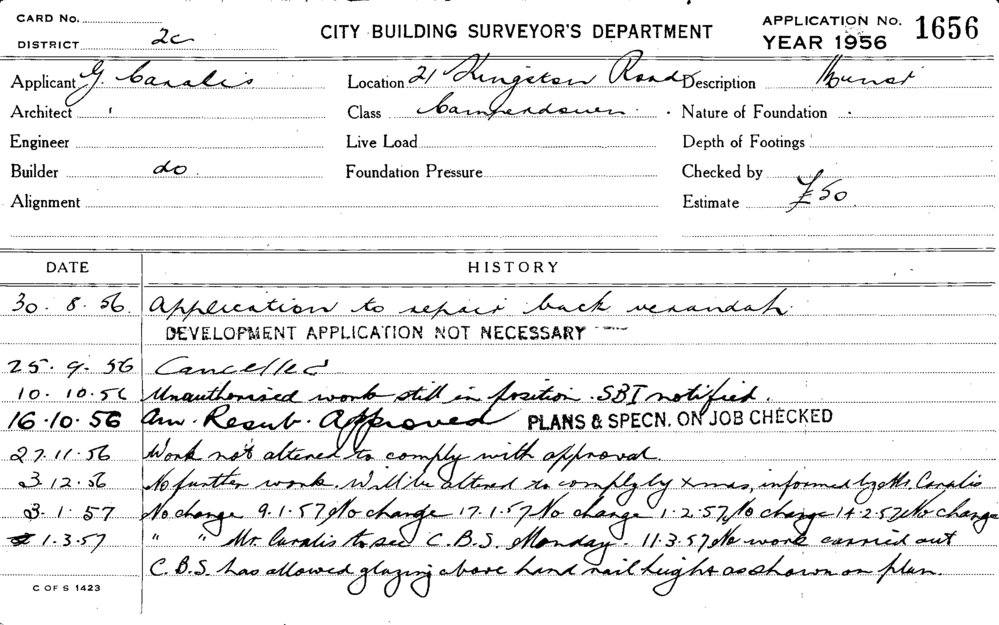 CARD No.
DISTRICT 2c
CITY BUILDING SURVEYOR'S DEPARTMENT
APPLICATION No. 1656
YEAR 1956
Applicant G. Canalis Location 21 Kingston Road Description
Architect Class Camperdown Nature of Foundation
Engineer Live Load Depth of Footings
Builder do. Foundation Pressure Checked by
Alignment Estimate £50
DATE HISTORY
30. 8. 56. Application to repair back verandah.
DEVELOPMENT APPLICATION NOT NECESSARY
25. 9. 56 Cancelled
10. 10. 56 Unauthorised work still in position. SBI notified.
16.10.56 Am. Resub. Approved PLANS & SPECN. ON JOB CHECKED
27.11.56 Work not altered to comply with approval.
3.12.56 No further work. Will be altered to comply by Xmas, informed by Mr. Canalis
3.1.57 No change 9.1.57 No change 17.1.57 No change 1.2.57, No change 14.2.57 No change
1.3.57 " " Mr. Canalis to see C.B.S. Monday. 11.3.57 No work carried out
C.B.S. has allowed glazing above hand rail height as shown on plan.
C OF S 1423